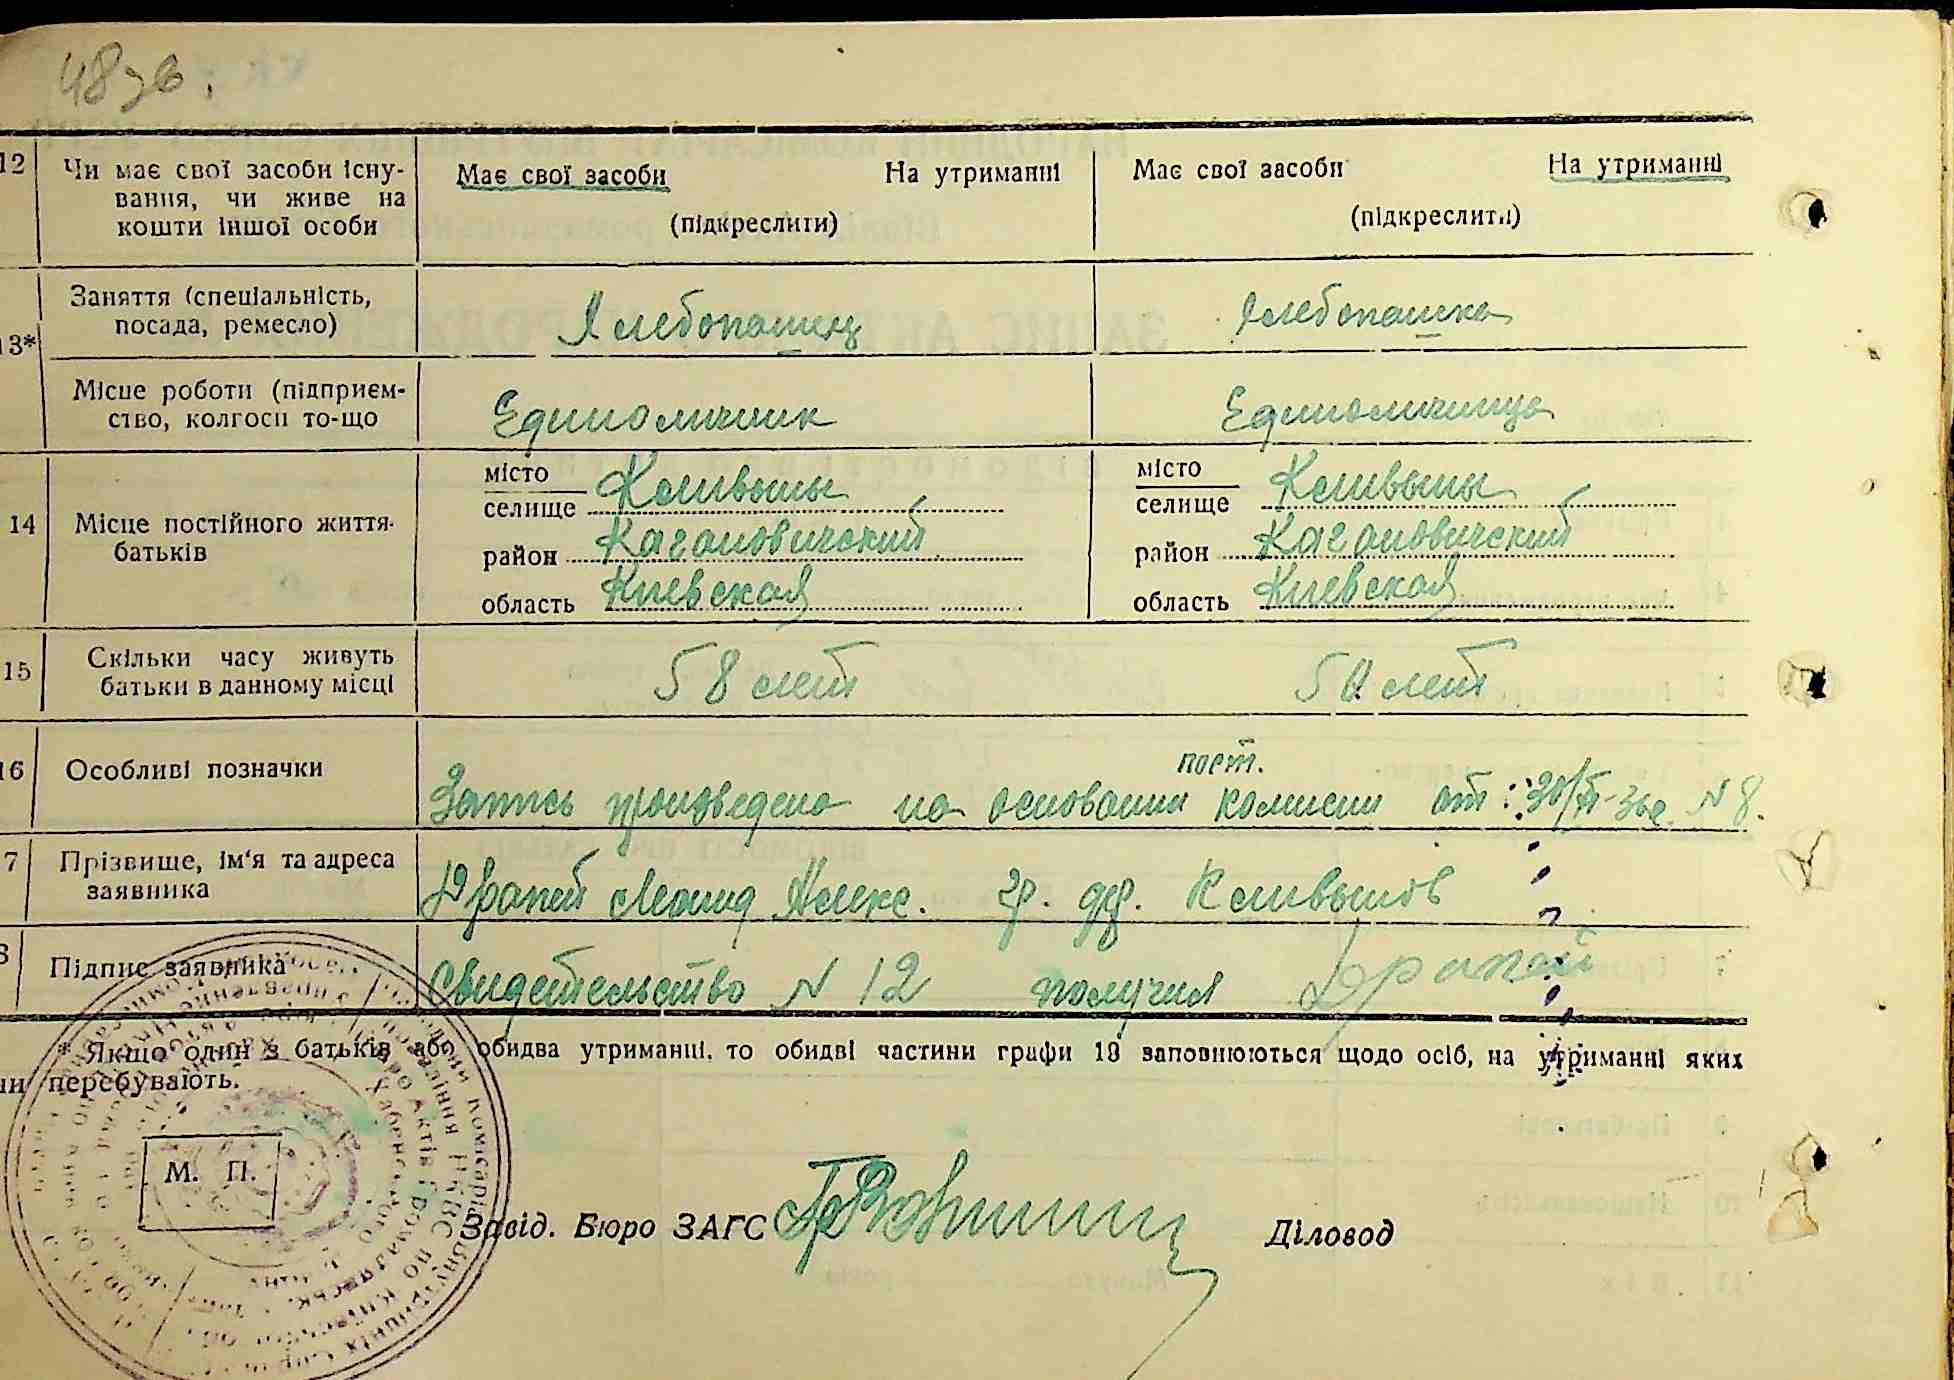 48 зв.
12 Чи має свої засоби існу- Має свої засоби На утриманні Має свої засоби На утриманні
вання, чи живе на (підкреслити) (підкреслити)
кошти іншої особи
Заняття (спеціальність, Хлебопашец Хлебопашка
посада, ремесло)
13*
Місце роботи (підприєм- Единоличник Единоличница
ство, колгосп то-що
14 Місце постійного життя батьків
місто Кливыны місто Кливыны
селище селище
район Кагановичский район Кагановичский
область Киевская область Киевская
15 Скільки часу живуть 58 лет 50 лет
батьки в данному місці
16 Особливі позначки пост.
Запись произведена на основании комисии от: 30/ №8.
7 Прізвище, ім'я та адреса Драпей Леонид Алекс. гр. дер. Кливынов
заявника
8 Підпис заявника Свидетельство № 12 получил Драпей
* Якщо один з батьків або обидва утриманні, то обидві частини графи 13 заповнюються щодо осіб, на утриманні яких
ни перебувають.
М. П.
Завід. Бюро ЗАГС Діловод